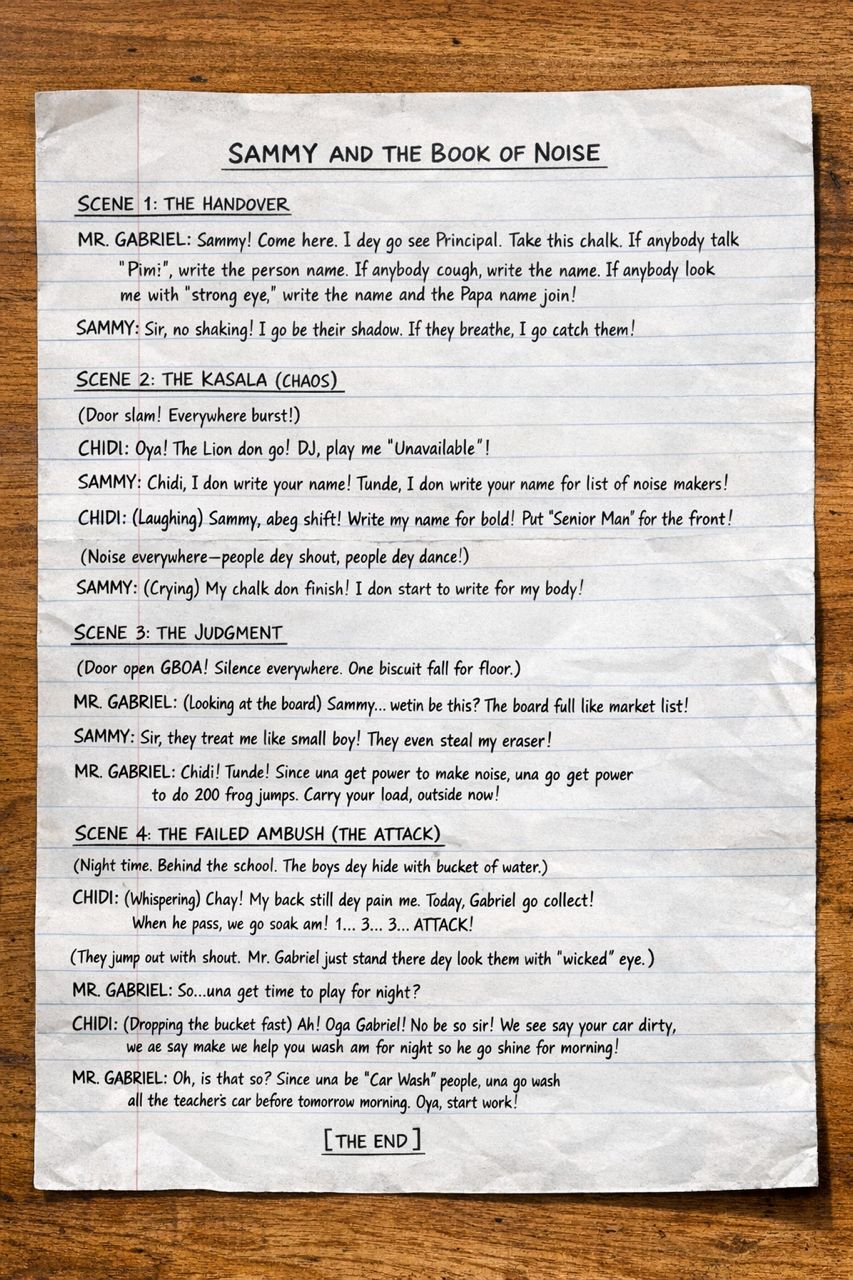 SAMMY AND THE BOOK OF NOISE
SCENE 1: THE HANDOVER
MR. GABRIEL: Sammy! Come here. I dey go see Principal. Take this chalk. If anybody talk
"Pim!", write the person name. If anybody cough, write the name. If anybody look
me with "strong eye," write the name and the Papa name join!
SAMMY: Sir, no shaking! I go be their shadow. If they breathe, I go catch them!
SCENE 2: THE KASALA (CHAOS)
(Door slam! Everywhere burst!)
CHIDI: Oya! The Lion don go! DJ, play me "Unavailable"!
SAMMY: Chidi, I don write your name! Tunde, I don write your name for list of noise makers!
CHIDI: (Laughing) Sammy, abeg shift! Write my name for bold! Put "Senior Man" for the front!
(Noise everywhere—people dey shout, people dey dance!)
SAMMY: (Crying) My chalk don finish! I don start to write for my body!
SCENE 3: THE JUDGMENT
(Door open GBOA! Silence everywhere. One biscuit fall for floor.)
MR. GABRIEL: (Looking at the board) Sammy... wetin be this? The board full like market list!
SAMMY: Sir, they treat me like small boy! They even steal my eraser!
MR. GABRIEL: Chidi! Tunde! Since una get power to make noise, una go get power
to do 200 frog jumps. Carry your load, outside now!
SCENE 4: THE FAILED AMBUSH (THE ATTACK)
(Night time. Behind the school. The boys dey hide with bucket of water.)
CHIDI: (Whispering) Chay! My back still dey pain me. Today, Gabriel go collect!
When he pass, we go soak am! 1... 3... 3... ATTACK!
(They jump out with shout. Mr. Gabriel just stand there dey look them with "wicked" eye.)
MR. GABRIEL: So...una get time to play for night?
CHIDI: (Dropping the bucket fast) Ah! Oga Gabriel! No be so sir! We see say your car dirty,
we ae say make we help you wash am for night so he go shine for morning!
MR. GABRIEL: Oh, is that so? Since una be "Car Wash" people, una go wash
all the teacher's car before tomorrow morning. Oya, start work!
[THE END]